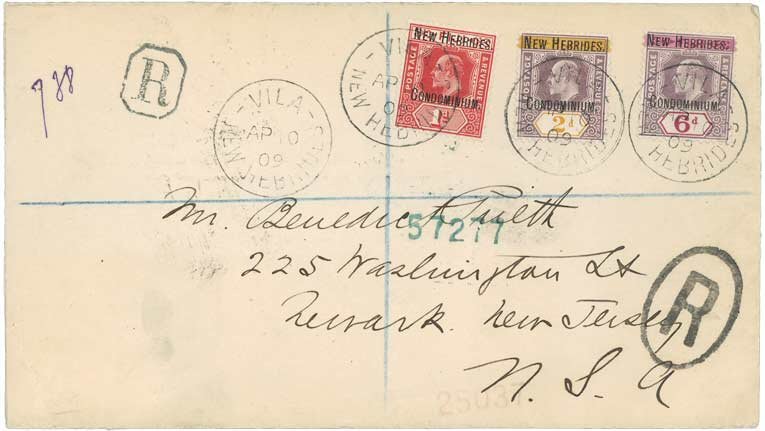 738
R
VILA
AP 10
09
NEW HEBRIDES
VILA
AP
09
NEW HEBRIDES
NEW HEBRIDES.
POSTAGE & REVENUE
CONDOMINIUM.
1d
NEW HEBRIDES.
POSTAGE & REVENUE
CONDOMINIUM.
2d
09
HEBRIDES
NEW HEBRIDES.
POSTAGE & REVENUE
CONDOMINIUM.
6d
VILA
09
HEBRIDES
Mr. Benedict
57277
225 Washington St
Newark. New Jersey
R
U. S. A
25037